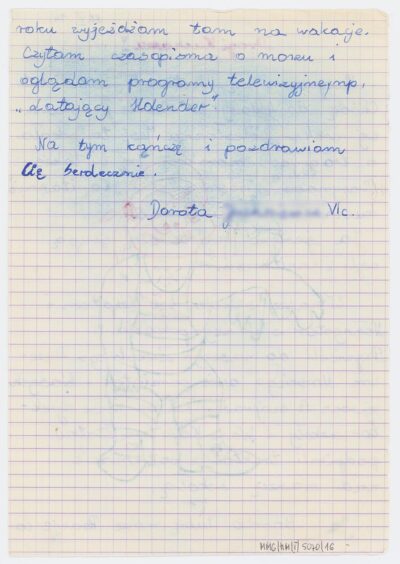 roku wyjeżdżam tam na wakacje.
Czytam czasopisma o morzu i
oglądam programy telewizyjne, np.
„Latający Holender".
Na tym kończę i pozdrawiam
Cię serdecznie.
Dorota VIc.
MMG/HM/I/5070/16